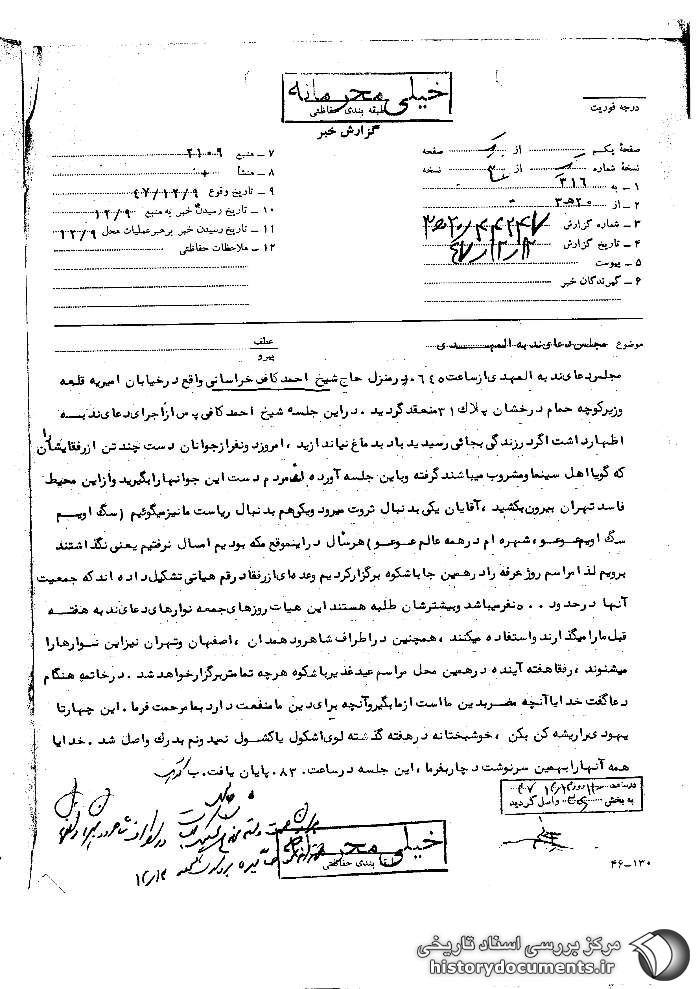 خیلی محرمانه
طبقه بندی حفاظتی
گزارش خبر
درجه فوریت
صفحهٔ یکم از صفحه
نسخهٔ شماره از نسخه
۱ ـ به ۳۱۶
۲ ـ از ۲۰ ﻫ ۳
۳ ـ شماره گزارش
۴ ـ تاریخ گزارش
۵ ـ پیوست
۶ ـ گیرندگان خبر
۷ ـ منبع ۲۱۰۹
۸ ـ منشأ
۹ ـ تاریخ وقوع ۴۷/۱۲/۹
۱۰ ـ تاریخ رسیدن خبر به منبع ۱۲/۹
۱۱ ـ تاریخ رسیدن خبر برهبر عملیات محل ۱۲/۹
۱۲ ـ ملاحظات حفاظتی
موضوع مجلس دعای ندبه المهدی
عطف
پیرو
مجلس دعای ندبه المهدی از ساعت ۰۶۴۵ در منزل حاج شیخ احمد کافی خراسانی واقع در خیابان امیریه قلعه
وزیر کوچه حمام درخشان پلاك ۳۱ منعقد گردید . در این جلسه شیخ احمد کافی پس از اجرای دعای ندبه
اظهار داشت اگر در زندگی بجائی رسیدید باد بدماغ نیاندازید ، امروز دو نفر از جوانان دست چند تن از رفقایشان را
که گویا اهل سینما و مشروب میباشند گرفته و باین جلسه آورده اند مردم دست این جوانها را بگیرید و از این محیط
فاسد تهران بیرون بکشید ، آقایان یکی بدنبال ثروت میرود و یکی هم بدنبال ریاست ما نیز میگوئیم ( سگ اویم
سگ اویم عوعو ، شهره ام در همه عالم عوعو ) هر سال در اینموقع مکه بودیم امسال نرفتیم یعنی نگذاشتند
برویم لذا مراسم روز عرفه را در همین جا باشکوه برگزار کردیم و عده ای از رفقا در قم هیاتی تشکیل داده اند که جمعیت
آنها در حدود ۵۰۰ نفر میباشد و بیشترشان طلبه هستند این هیات روزهای جمعه نوارهای دعای ندبه هفته
قبل ما را میگذارند و استفاده میکنند ، همچنین در اطراف شاهرود همدان ، اصفهان و تهران نیز این نوارها را
میشنوند ، رفقا هفته آینده در همین محل مراسم عید غدیر باشکوه هرچه تمامتر برگزار خواهد شد . در خاتمه هنگام
دعا گفت خدایا آنچه مضر بدین ما است از ما بگیر و آنچه برای دین ما منفعت دارد بما مرحمت فرما . این چهار تا
یهودی را ریشه کن بکن ، خوشبختانه در هفته گذشته لوی اشکول یا کشول نمیدونم بدرك واصل شد . خدایا
همه آنها را بهمین سرنوشت دچار بفرما ، این جلسه در ساعت ۰۸۳۰ پایان یافت .
در ساعت روز
به بخش واصل گردید
خیلی محرمانه
طبقه بندی حفاظتی
۴۶-۱۳۰
مرکز بررسی اسناد تاریخی
historydocuments.ir